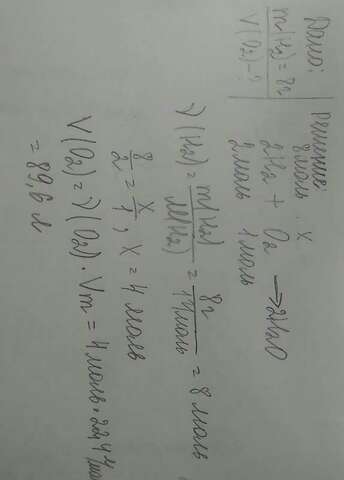 Дано:
m(H2) = 8г
V(O2) - ?
Решение:
8моль x
2H2 + O2 → 2H2O
2моль 1моль
ν(H2) = m(H2) / M(H2) = 8г / 1г/моль = 8 моль
8/2 = x/1, x = 4 моль
V(O2) = ν(O2) · Vm = 4 моль · 22,4
= 89,6 л